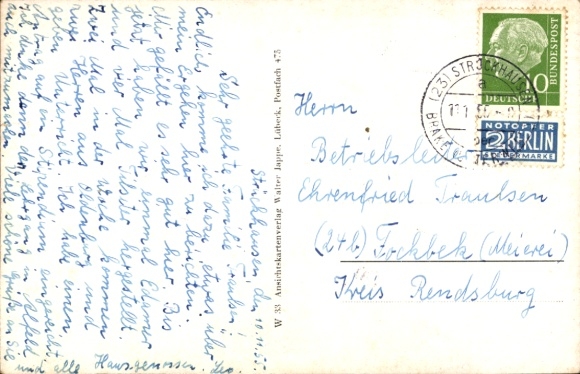 Strückhausen, den 10.11.55.
Sehr geehrte Familie Traulsen!
Endlich komme ich dazu, etwas über
mein Ergehen hier zu berichten.
Mir gefällt es sehr gut hier. Bis
jetzt haben wir einmal Edamer
und vier Mal Tilsiter hergestellt.
Zwei Mal in der Woche kommen
zwei Herren aus Oldenburg und
geben Unterricht. Ich habe einen
Antrag auf ein Stipendium eingereicht.
Ich denke dann den Lehrgang in
auch mitzumachen. Viele schöne Grüße an Sie
und alle Hausgenossen. Ihr
W 33 Ansichtskartenverlag Walter Jappe, Lübeck, Postfach 475
DEUTSCHE
BUNDESPOST
10
(23) STRÜCKHAUSEN
a
BRAKE
NOTOPFER
2 BERLIN
STEUERMARKE
Herrn
Betriebsleiter
Ehrenfried Traulsen
(24b) Fockbek (Meierei)
Kreis Rendsburg